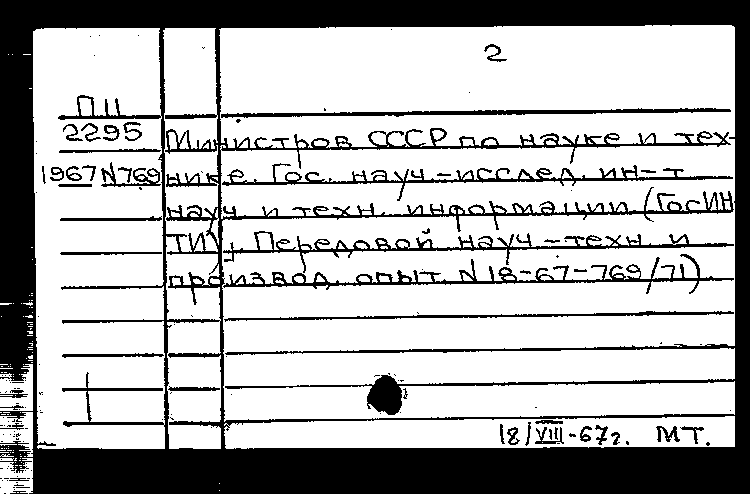 2
П II
2295 Министров СССР по науке и тех-
1967 N 769 нике. Гос. науч-исслед. ин-т
науч. и техн. информации (ГосИН
ТИ), Передовой науч-техн. и
производ. опыт. N 18-67-769/71)
18/VIII-67г. МТ.